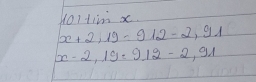 10) tìm x.
x + 2,19 = 9,12 - 2,91
x - 2,19 = 9,12 - 2,91